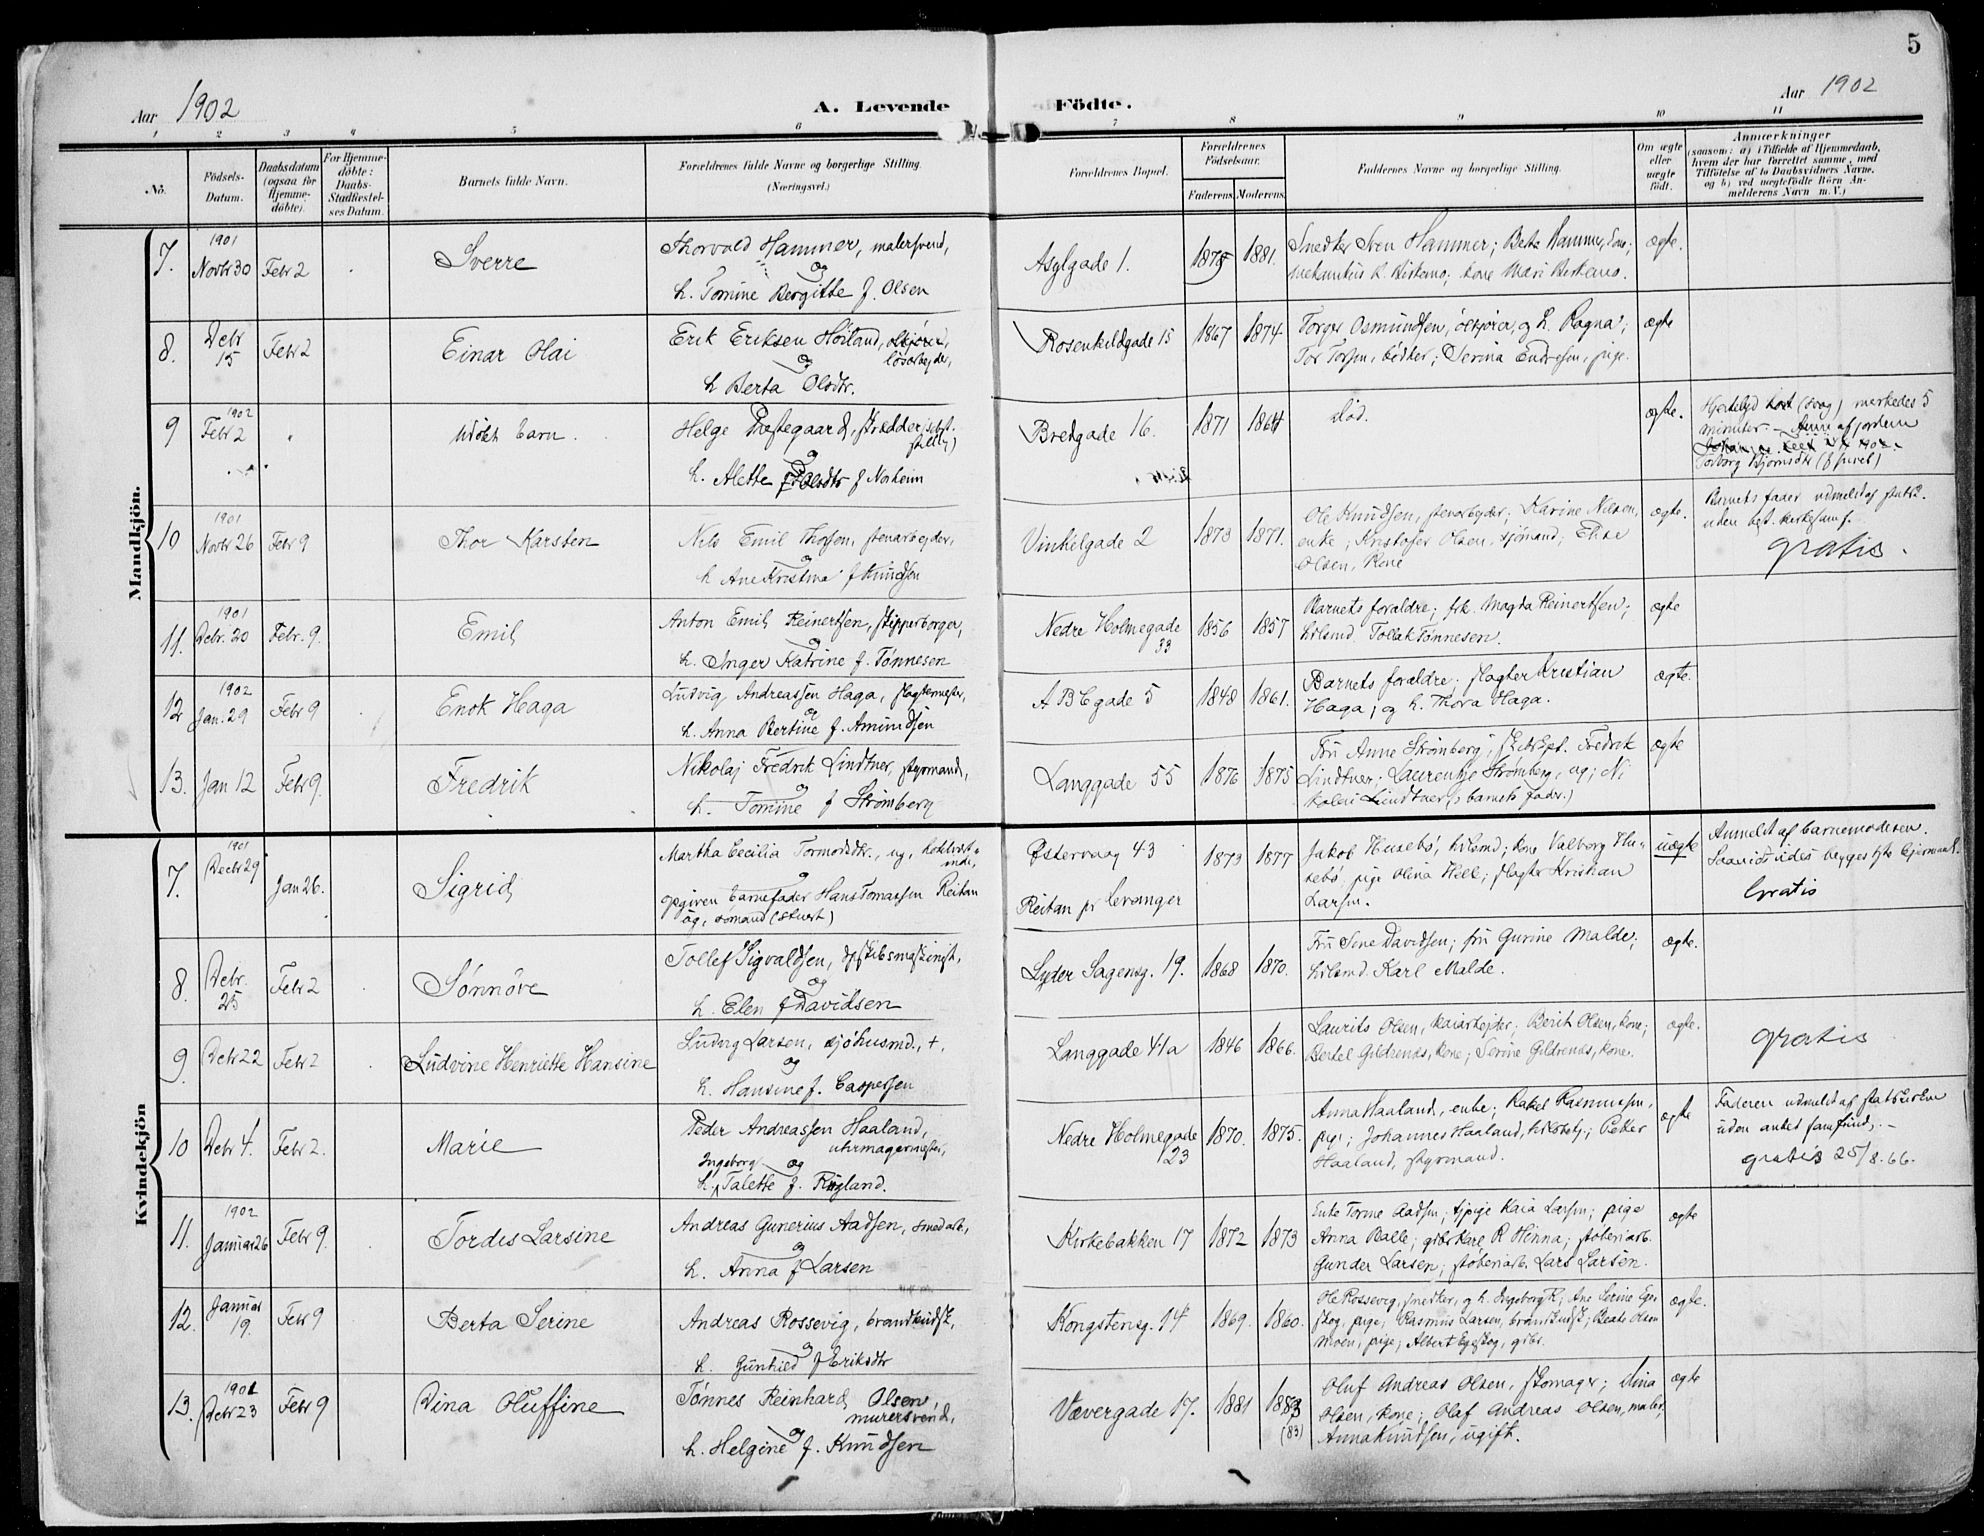 5
Aar 1902
A. Levende Födte.
Aar 1902
1 2 3 4 5 6 7 8 9 10 11
No.
Födsels-Datum.
Daabsdatum (ogsaa for Hjemme-döbte).
For Hjemme-döbte: Daabs-Stadfæstel-ses Datum.
Barnets fulde Navn.
Forældrenes fulde Navne og borgerlige Stilling. (Næringsvei.)
Forældrenes Bopæl.
Forældrenes Födselsaar.
Faderens. Moderens.
Faddernes Navne og borgerlige Stilling.
Om ægte eller uægte födt.
Anmærkninger
(saasom: a) i Tilfælde af Hjemmedaab, hvem der har forrettet samme, med Tilföielse af to Daabsvidners Navne, og b) ved uægtefödte Börn An-melderens Navn m. V.)
Mandkjön.
7. 1901 Novbr 30 Febr 2 Sverre
Thorvald Hammer, malersvend,
og
h. Tomine Bergitte f. Olsen
Asylgade 1. 1875 1881.
Smedker Sven Hammer; Berta Hammer,
kone Mari
ægte.
8. Debr 15 Febr 2 Einar Olai
Erik Eriksen Höiland,
lösarbejder,
og
h Berta Olsdtr.
Rosenkildgade 15 1867 1874
Torger Osmundsen, og h. Ragna;
Tor Torsen, bödker; Serina Endresen, pige.
ægte
9 1902 Febr 2 udöbt barn.
Helge Prestegaard, skrædder
og
h. Alette f Norheim
Bredgade 16. 1871 1864
död.
ægte.
Hjertelyd (svag) merkedes 5
minuter.
10 1901 Novbr 26 Febr 9 Thor Karsten
Nils Emil Thorsen, stenarbejder,
og
h Ane Kristina f Knudsen
Vinkelgade 2 1873 1871.
Ole Knudsen, stenarbejder; Karine Nilsen,
enke; Kristofer Olsen, sjömand; Elise
Olsen, kone
ægte.
Barnets fader udmeldt af statsk.
uden best. kirkesamf.
gratis.
11. 1901 Debr. 20 Febr. 9. Emil
Anton Emil Reinertsen, skipperborger,
og
h. Inger Katrine f. Tönnesen
Nedre Holmegade 33 1856 1857
Barnets foraldre; frk. Magda Reinertsen;
Tollak Tönnesen.
ægte
12 1902 Jan. 29 Febr 9 Enok Haga
Ludvig Andreassen Haga, slagtermester,
og
h. Anna Bertine f. Amundsen
A B C gade 5 1848 1861.
Barnets foraldre. slagter Kristian
Haga; og h. Thora Haga.
ægte
13. Jan 12 Febr 9. Fredrik
Nikolaj Fredrik Lindtner, styrmand,
og
h. Tomine f Strömberg
Langgade 55 1876 1875
Fru Anne Strömberg; Fredrik
Lindtner; Laurentse Strömberg, ug; Ni
kolai Lindtner (barnets fader.)
ægte
Kvindekjön
7. 1901 Decbr 29 Jan 26. Sigrid
Martha Cecilia Tormodsdtr., ug,
og
opgiven barnefader Hans Tomassen Reitan
ug, sömand (stuert)
Östervaag 43
Reitan pr Levanger
1873 1877
Jakob Husebö, kone Valborg Hu-
sebö, pige Olina Helle; slagter Kristian
Larsen.
uægte
Anmeldt af barnemoderen.
Gratis
8. Debr. 25 Febr 2 Sönnöve
Tollef Sigvaldsen, skibsmaskinist,
og
h. Elen f Davidsen
Lyder Sagensg. 19. 1868 1870.
Fru Sine Davidsen; fru Gurine Malde;
Karl Malde.
ægte.
9. Debr 22 Febr 2 Ludvine Henriette Hansine
Ludvig Larsen, sjöhusmd., +,
og
h. Hansine f. Caspersen
Langgade 41a 1846 1866.
Laurits Olsen, kaiarbejder; Berit Olsen, kone;
Bertel Gildrenæs, kone; Serine Gildrenæs, kone.
ægte.
gratis
10 Debr 4. Febr 2. Marie
Peder Andreassen Haaland,
uhrmagermester,
Ingeborg og
h. Talette f. Fuglland.
Nedre Holmegade 23 1870. 1875.
Anna Haaland, enke; Rakel Rasmussen,
pige; Johannes Haaland, Peter
Haaland, styrmand.
ægte
Faderen udmeldt af statskirken
uden antet samfund, –
gratis 25/8.66.
11. 1902 Januar 26 Febr 9. Tordis Larsine
Andreas Gunerius Aadsen, smedarb,
og
h. Anna f Larsen
Kirkebakken 17 1872 1873
Enke Torine Aadsen; tjpige Kaia Larsen; pige
Anna Balle; R Hinna; stöberiarb.
Gunder Larsen; stöberiarb. Lars Larsen.
ægte
12. Januar 19. Febr 9 Berta Serine
Andreas Rossevig, brandkudsk,
og
h. Gunhild f Eriksdtr
Kongstensg. 14 1869. 1860.
Ole Rossevig, smedker, og h. Ingeborg R; Ane Serine Ege
skog, pige; Rasmus Larsen, brandkudsk; Beate Olsen
Moen, pige; Albert Egeskog, gdbr.
ægte.
13. 1901 Debr 23 Febr 9 Dina Oluffine
Tönnes Reinhard Olsen,
murersvend,
og
h. Helgine f. Knudsen
Vævergade 17. 1881 1883 (83)
Oluf Andreas Olsen, skomager; Dina
Olsen, kone; Olaf Andreas Olsen, maler,
Anna Knudsen, ugift.
ægte